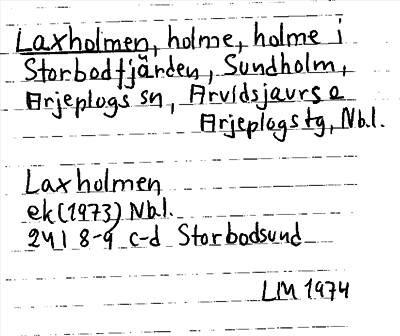 Laxholmen, holme, holme i
Storbodfjärden, Sundholm,
Arjeplogs sn, Arvidsjaurs o
Arjeplogs tg, Nbl.
Laxholmen
ek (1973) Nbl.
24I 8-9 c-d Storbodsund
LM 1974